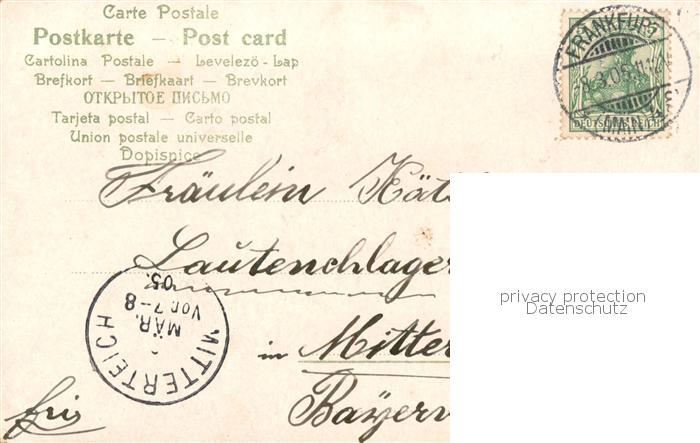 Carte Postale
Postkarte — Post card
Cartolina Postale — Levelező-Lap
Brefkort — Briefkaart — Brevkort
ОТКРЫТОЕ ПИСЬМО
Tarjeta postal — Carto postal
Union postale universelle
Dopisnice
FRANKFURT
(MAIN)
DEUTSCHES REICH
Fräulein Kät
Lautenchlager
in Mitter
Bayern
frei
MITTERTEICH
MÄR.
Vor. 7-8
05.
privacy protection
Datenschutz